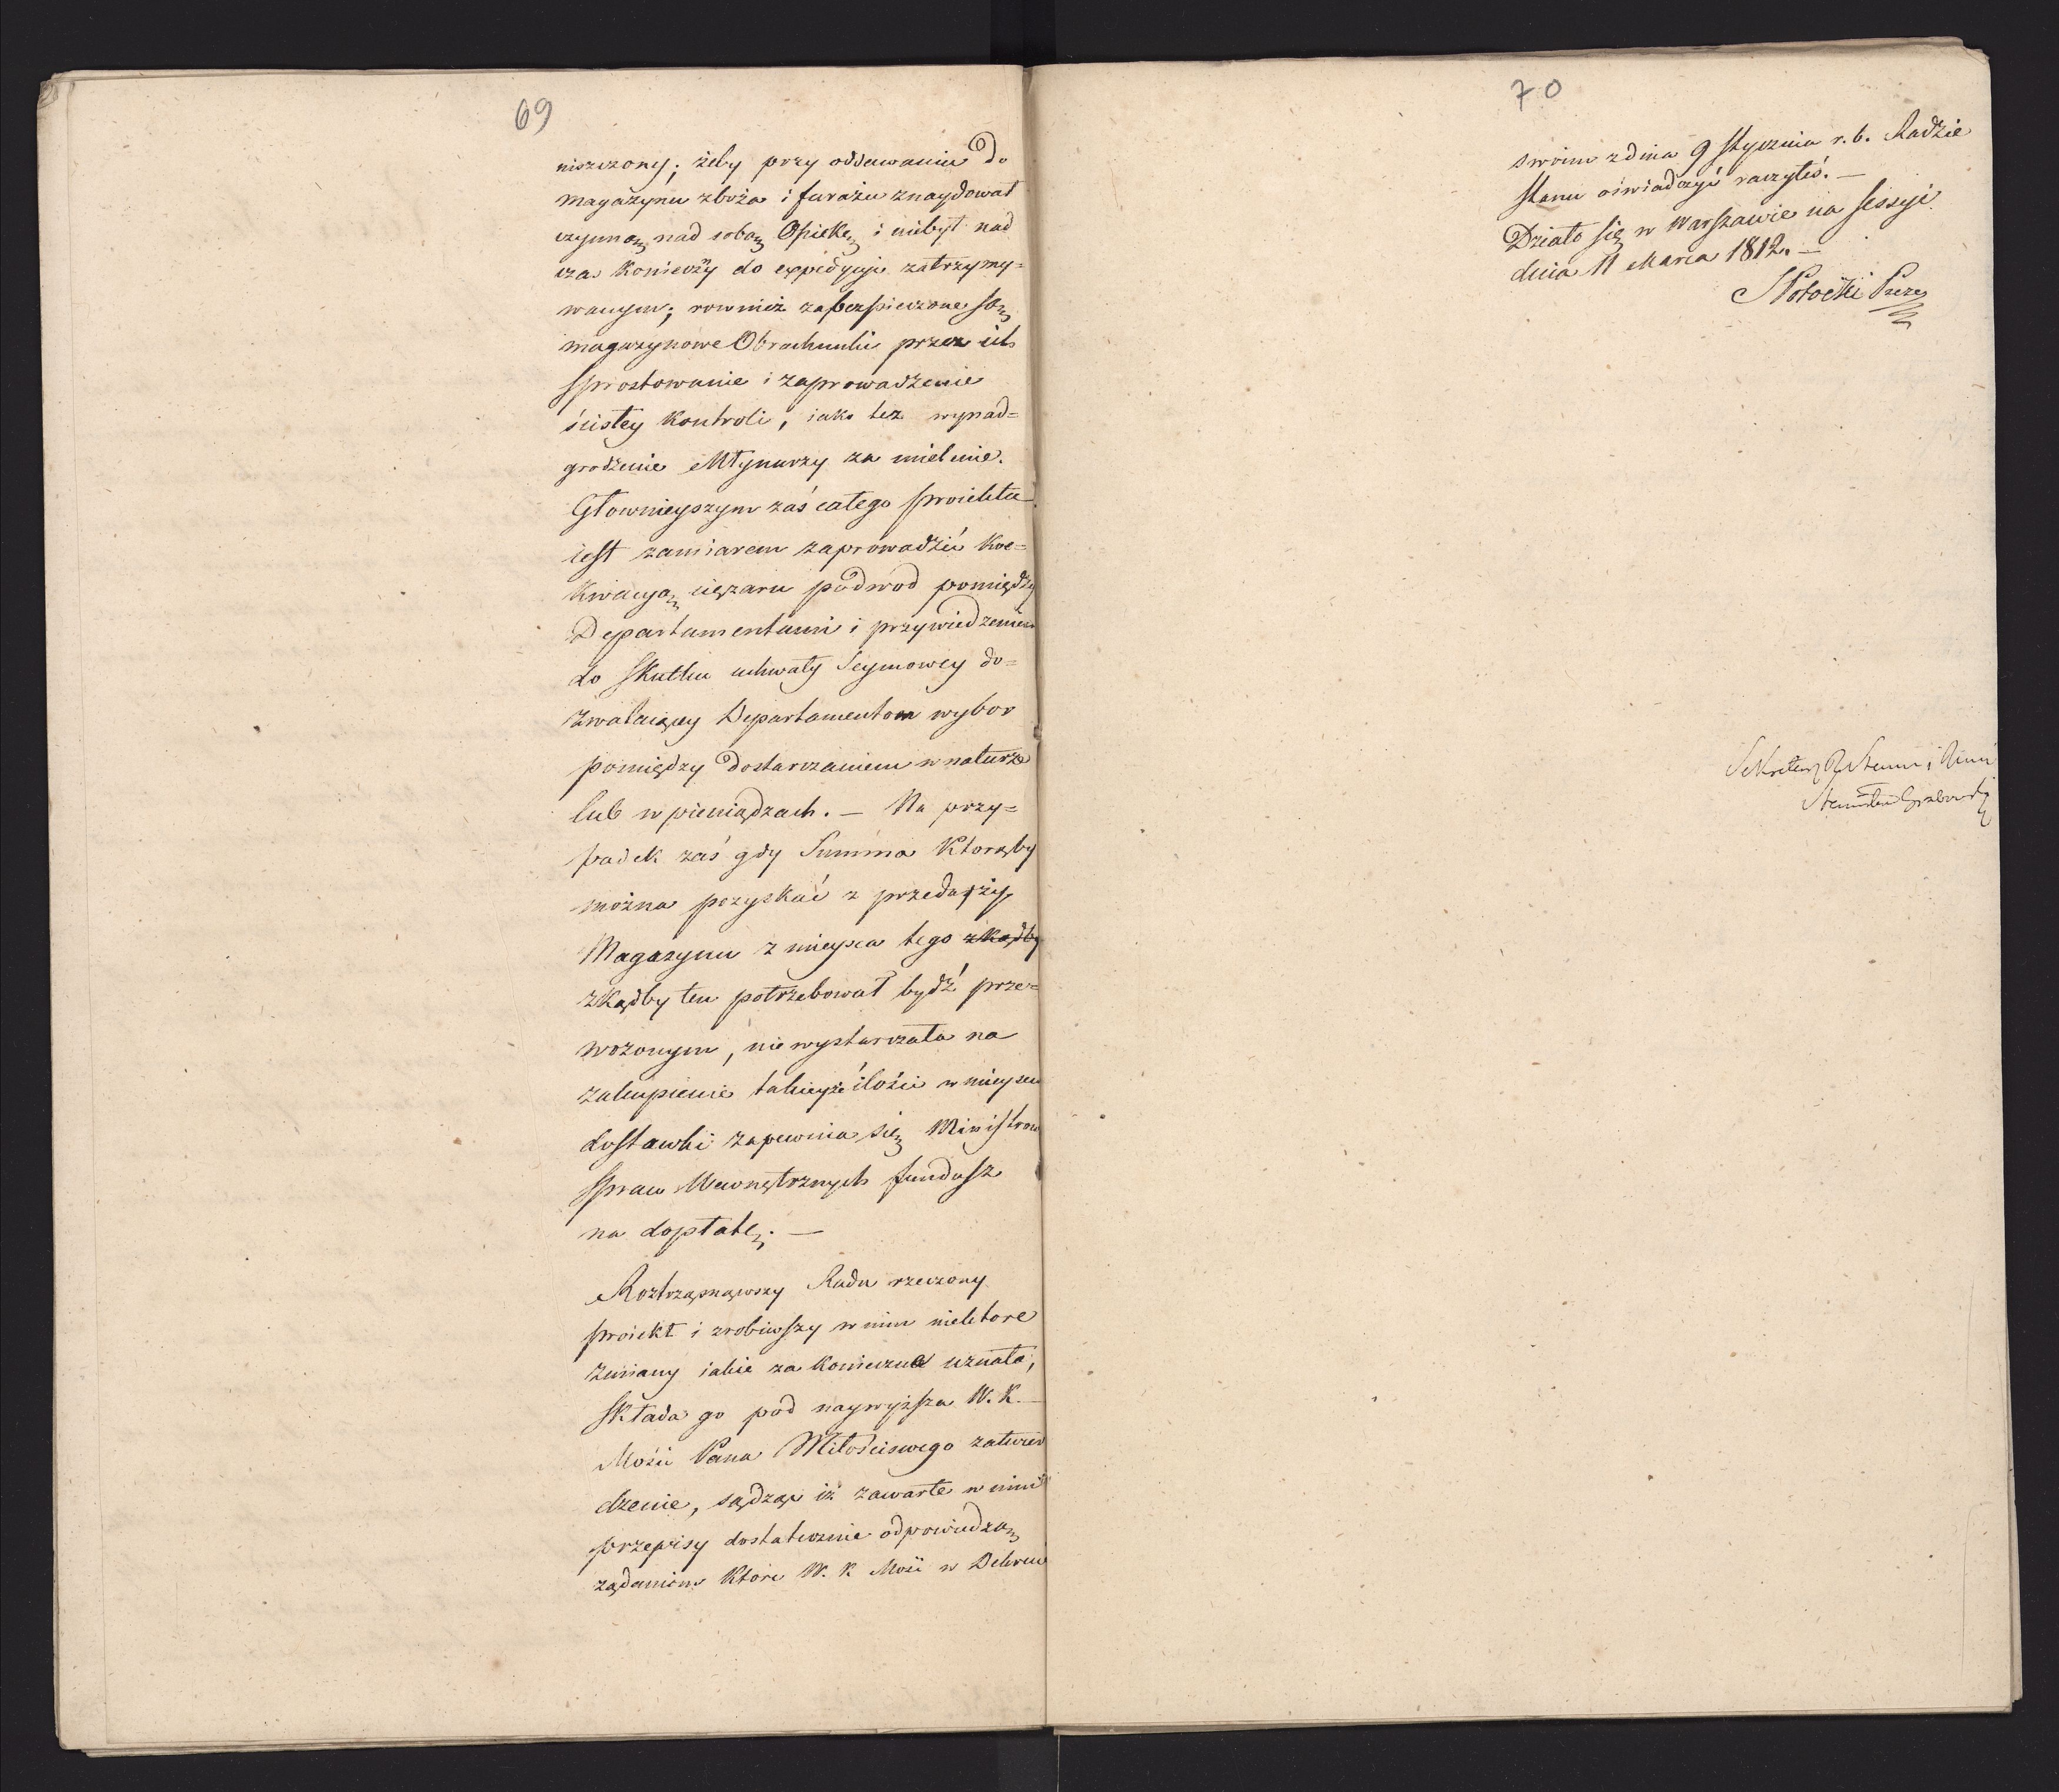 69
niszczony; żeby przy oddawaniu do
magazynu zboża i furażu znaydował
czynną nad sobą Opiekę i niebył nad
czas konieczny do expedycyi zatrzymy=
wanym; rownież zabezpieczone są
magazynowe Obrachunki przez ich
sprostowanie i zaprowadzenie
ścisłey kontroli, iako też wynad=
grodzenie Młynarzy za mielenie.
Głownieyszym zaś całego proiektu
iest zamiarem zaprowadzić koe=
kwacyą ciężaru podwod pomiędzy
Departamentami i przywiedzenie
do skutku uchwały Seymowey do=
zwalaiącey Departamentom wybor
pomiędzy dostarczaniem w naturze
lub w pieniądzach. — Na przy=
padek zaś gdy Summa ktorąby
można pozyskać z przedaży
Magazynu z mieysca tego zkądby
zkądby ten potrzebował bydź prze=
wożonym, nie wystarczała na
zakupienie takieyże ilości w mieyscu
dostawki zapewnia się Ministrowi
Spraw Wewnętrznych fundusz
na dopłatę. —
Roztrząsnąwszy Rada rzeczony
proiekt i zrobiwszy w nim niektore
zmiany iakie za konieczne uznała,
składa go pod naywyższa W. K.
Mości Pana Miłościwego zatwier
dzenie, sądząc iż zawarte w nim
przepisy dostatecznie odpowiedzą
żądaniom ktore W. K Mość w Dekrecie
70
swoim z dnia 9 Stycznia r. b. Radzie
Stanu oświadczyć raczyłeś. —
Działo się w Warszawie na Sessyi
dnia 11 Marca 1812. —
S Potocki Prezes
Sekretarz R Stanu i Min
Stanisław Grabowski